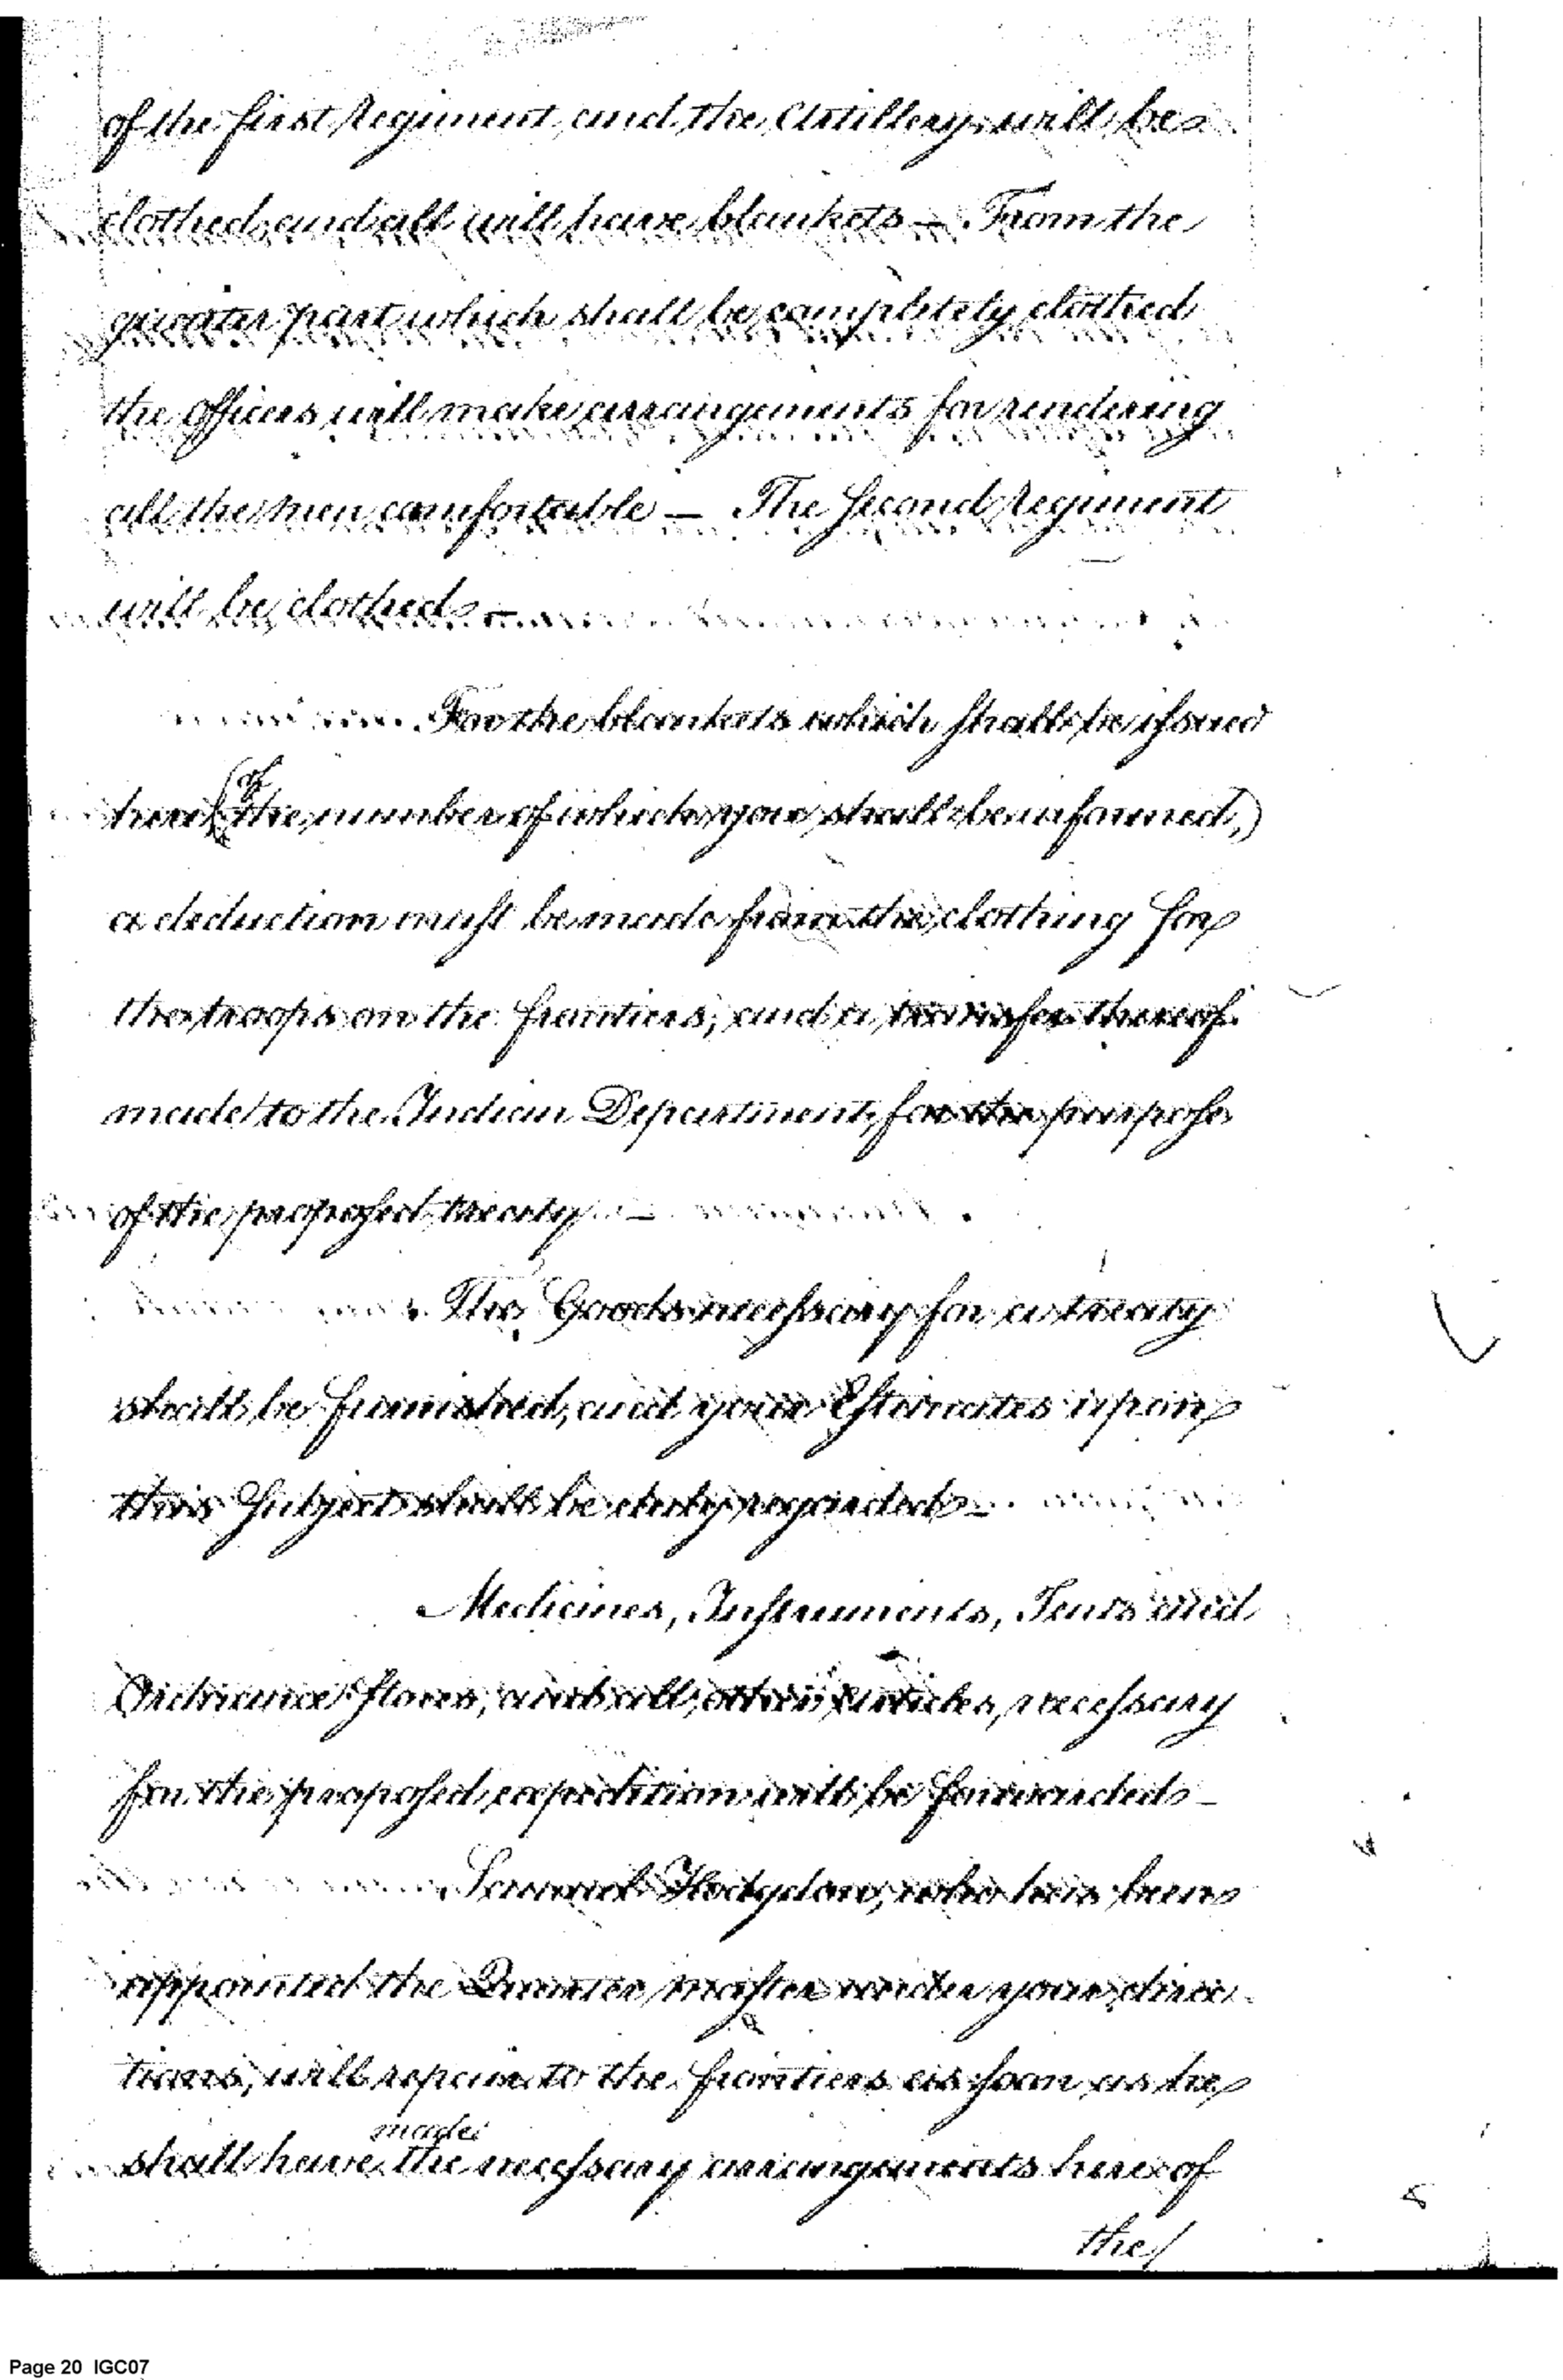 of the first Regiment and the Artillery will be
clothed, and all will have blankets — From the
greater part which shall be completely clothed
the officers will make arrangements for rendering
all the men comfortable — The Second Regiment
will be clothed —
For the blankets which shall be issued
here (of the number of which you shall be informed,)
a deduction must be made from the clothing for
the troops on the frontiers; and a transfer thereof
made to the Indian Department, for the purpose
of the proposed treaty —
The Goods necessary for a treaty
shall be furnished, and your Estimates upon
this Subject shall be duly regarded —
Medicines, Instruments, Tents and
Ordnance Stores, and all other articles, necessary
for the proposed expedition will be forwarded —
Samuel Hodgdon, who has been
appointed the Quarter master under your direc-
tions, will repair to the frontiers as soon as he
shall have made the necessary arrangements here of
the
Page 20 IGC07